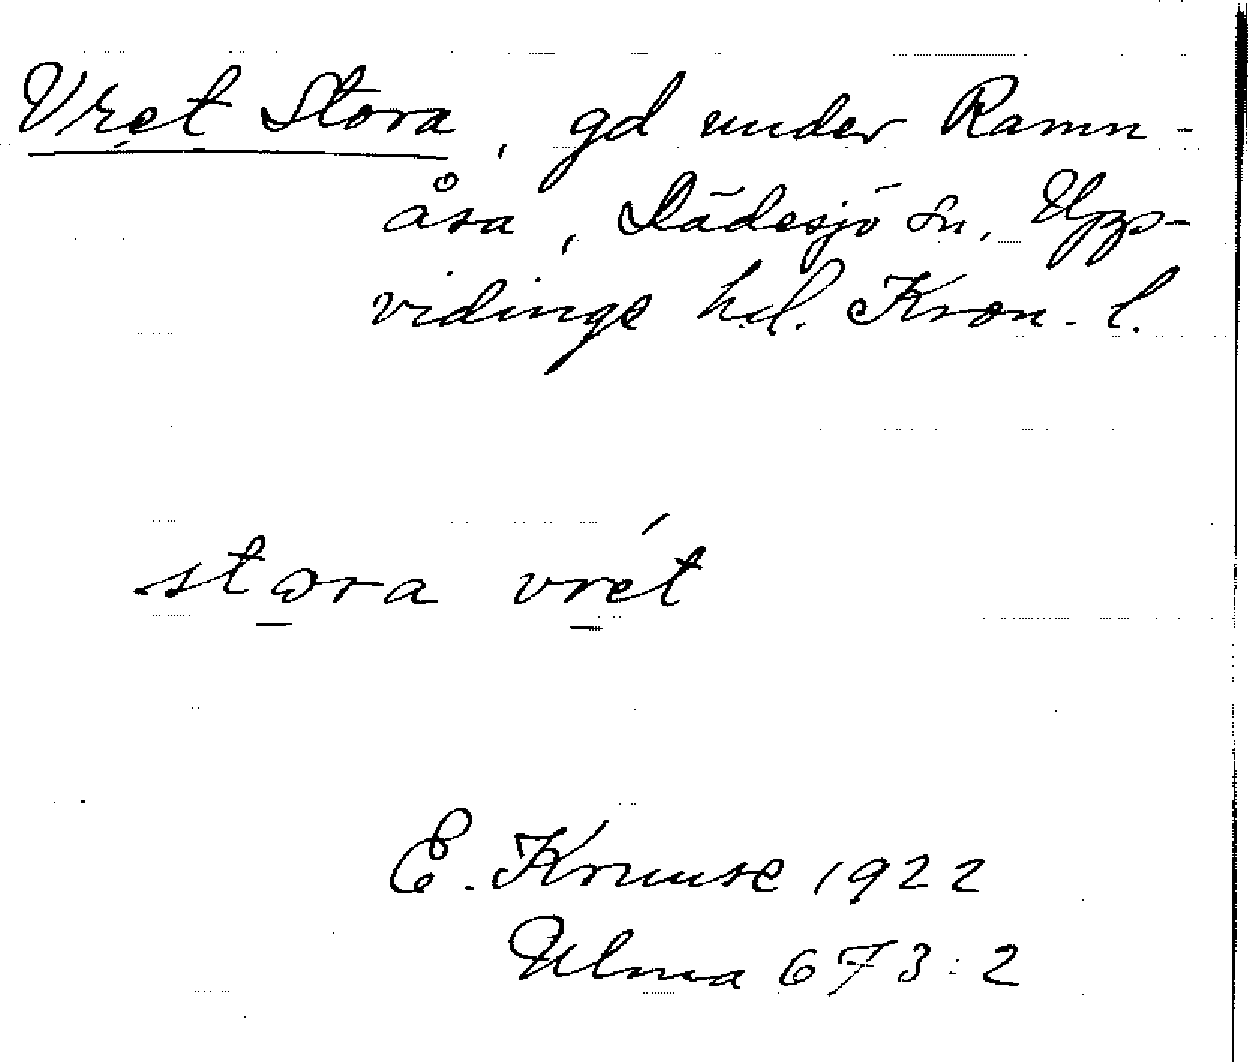 Vret Stora, gd under Ramn-
åsa, Dädesjö sn, Upp-
vidinge hd. Kron. l.
stora vrét
E. Kruuse 1922
Ulma 673:2